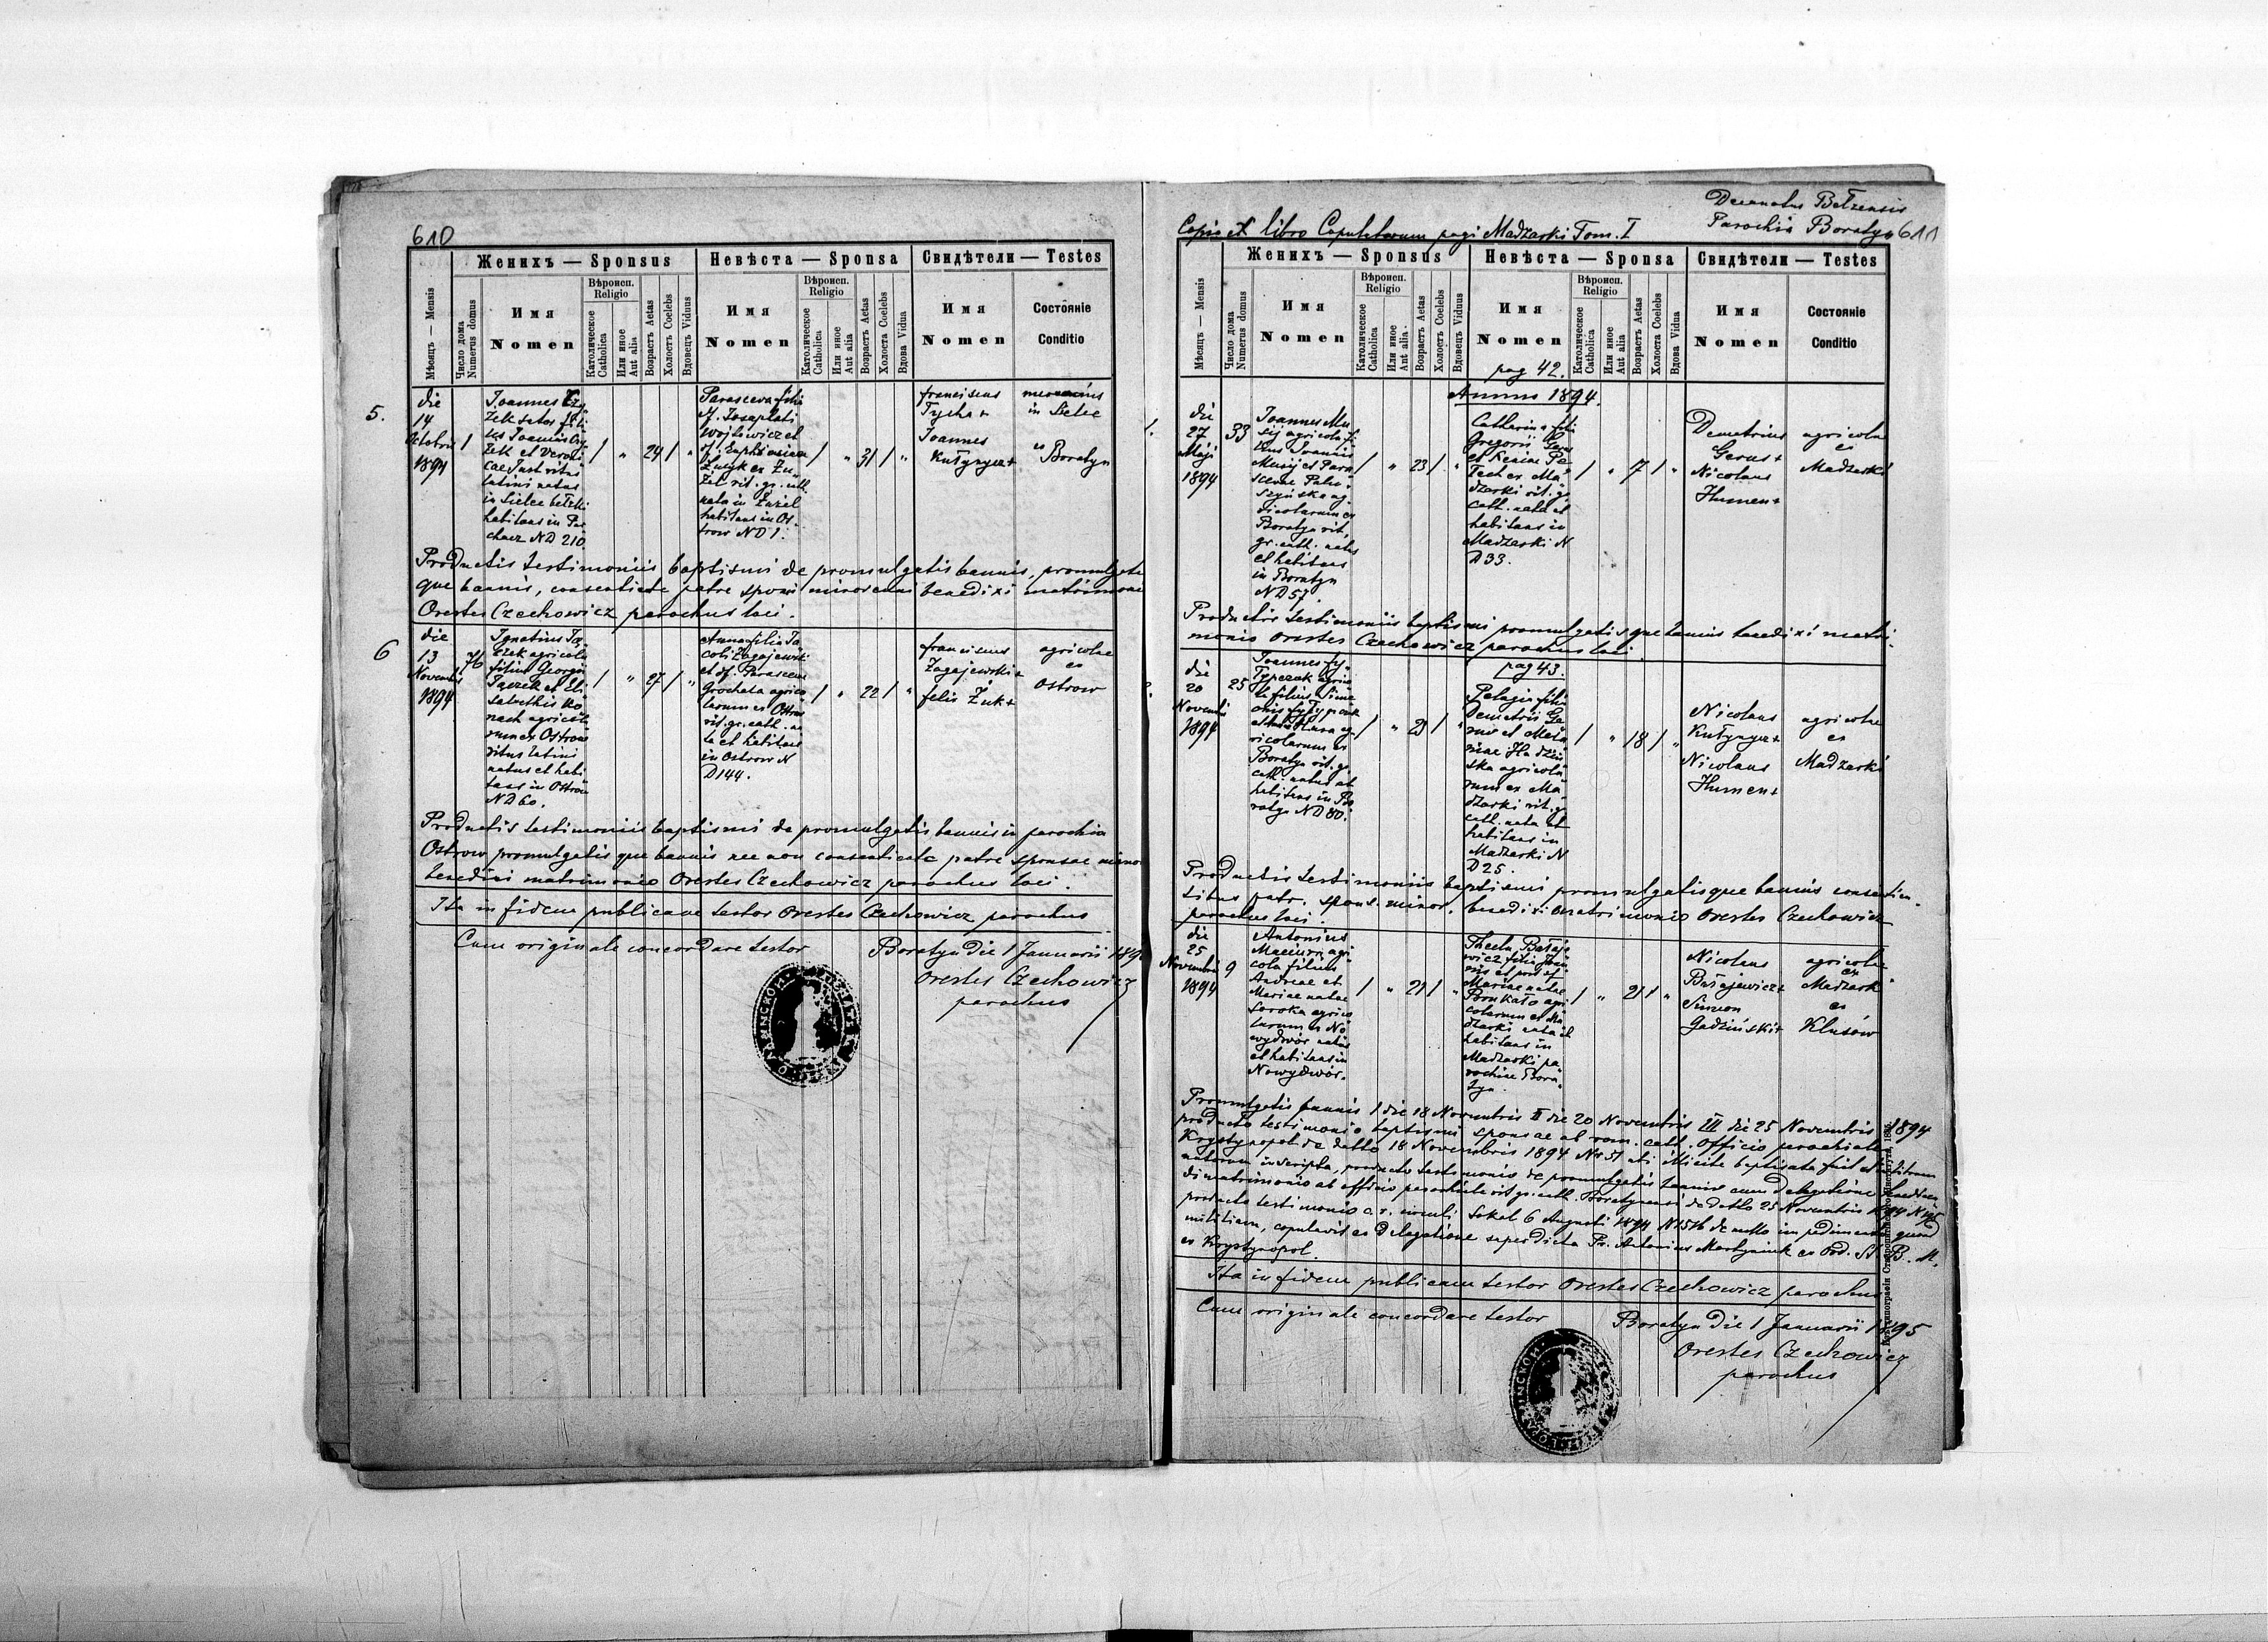 610
Женихъ — Sponsus
Невѣста — Sponsa
Свидѣтели — Testes
Мѣсяцъ — Mensis
Число дома
Numerus domus
Имя
Nomen
Вѣроисп.
Religio
Католическое
Catholica
Или иное
Aut alia
Возрастъ Aetas
Холостъ Coelebs
Вдовецъ Viduus
Имя
Nomen
Вѣроисп.
Religio
Католическое
Catholica
Или иное
Aut alia
Возрастъ Aetas
Холоста Coelebs
Вдова Vidua
Имя
Nomen
Состоянiе
Conditio
5.
die
14
Octobris
1894
1
Joannes
zek sator fili
us Joannis
zek et Veroni
cae Just ritus
latini natus
in Sielec bełzki
habitans in Par
chacz ND 210.
1 " 24 1 "
Parasceva filia
def. Josaphati
Wojtowicz et
def. Euphrosinae
Żmyk ex Żu
żel rit. gr. cath.
nata in Żużel
habitans in Os-
trow ND 1.
1 " 31 1 "
franciscus
Tycha +
Joannes
Kułynycz +
in Sielec
ex Boratyn
Productis testimoniis baptismi de promulgatis bannis, promulgatis
que bannis, consentiente patre sponsi minorenni benedixi matrimonio
Orestes Czechowicz parochus loci.
6
die
13
Novembris
1894
76
Ignatius Ja
czek agricola
filius Georgii
Jaczek et Eli
sabethis Ko
nach agricola
rum ex Ostrow
ritus latini
natus et habi
tans in Ostrow
ND 60.
1 " 27 1 "
Anna filia Ja
cobi Zagajewski
et def. Parascevae
Grochala agrico
larum ex Ostrow
rit. gr. cath. na
ta et habitans
in Ostrow N
D 144.
1 " 22 1 "
franciscus
Zagajewski +
felix Żuk +
agricolae
ex
Ostrow
Productis testimoniis baptismi de promulgatis bannis in parochia
Ostrow promulgatis que bannis nec non consentiente patre sponsae minor
benedixi matrimonio Orestes Czechowicz parochus loci.
Ita in fidem publicam testor Orestes Czechowicz parochus
Cum originale concordare testor
Boratyn die 1 Januarii 189
Orestes Czechowicz
parochus
Decanatus Bełzensis
Parochia Boratyn 611
Copia ex libro Copulatorum pagi Madzarki Tom. I
Женихъ — Sponsus
Невѣста — Sponsa
Свидѣтели — Testes
Мѣсяцъ — Mensis
Число дома
Numerus domus
Имя
Nomen
Вѣроисп.
Religio
Католическое
Catholica
Или иное
Aut alia
Возрастъ Aetas
Холостъ Coelebs
Вдовецъ Viduus
Имя
Nomen
pag 42.
Вѣроисп.
Religio
Католическое
Catholica
Или иное
Aut alia
Возрастъ Aetas
Холоста Coelebs
Вдова Vidua
Имя
Nomen
Состоянiе
Conditio
Anno 1894.
1.
die
27
Maji
1894
33
Joannes Mu
sij agricola fi
lius Joannis
Musij et Para
scevae Palu
szyńska ag
ricolarum ex
Boratyn rit.
gr. cath. natus
et habitans
in Boratyn
ND 57.
1 " 23 1 "
Catharina filia
Gregorii
et Xeniae Pe
tech ex Ma
dzarki rit. gr.
cath. nata et
habitans in
Madzarki N
D 33.
1 " 17 1 "
Demetrius
Gerus +
Nicolaus
Humen +
agricolae
ex
Madzarki
Productis testimoniis baptismi promulgatis que bannis benedixi matri-
monio Orestes Czechowicz parochus loci.
pag 43.
2.
die
20
Novembris
1894
25
Joannes Fy
typczak agrico
la filius Sime
onis Fytypczak
et
ricolarum ex
Boratyn rit. gr.
cath. natus et
habitans in Bo
ratyn ND 80.
1 " 23 1 "
Pelagia filia
Demetrii Ge
rus et Mela
niae Hadziń
ska agricola
rum ex Ma
dzarki rit. gr.
cath. nata et
habitans in
Madzarki N
D 25.
1 " 18 1 "
Nicolaus
Kułynycz +
Nicolaus
Humen +
agricolae
ex
Madzarki
Productis testimoniis baptismi promulgatisque bannis consentien-
tibus patr. spons. minor. benedixi matrimonio Orestes Czechowicz
parochus loci.
die
25
Novembris
1894
9
Antonius
Maciura agri
cola filius
Andreae et
Mariae natae
Soroka agrico
larum ex No
wydwór natus
et habitans in
Nowydwór.
1 " 21 1 "
Thecla Basaje
wicz filia Joan
nis et
Mariae natae
Prukało agri
colarum ex Ma
dzarki nata et
habitans in
Madzarki pa
rochiae Bora
tyn.
1 " 21 1 "
Nicolaus
Basajewicz +
Simeon
Gadziński +
agricolae
ex
Madzark
ex
Klusów
Promulgatis bannis I die 18 Novembris II die 20 Novembris III die 25 Novembris 1894
producto testimonio baptismi sponsae ab rom. cath. Officio parochiale
Krystynopol de datto 18 Novembris 1894 Nr 51 ubi illicite baptisata fuit et in librum
natorum inscripta, producto testimonio de promulgatis bannis cum delegatione benedicen
di matrimonio ab officio parochiale rit. gr. cath. Boratynensi de datto 25 Novembris 1894 N 195
producto testimonio c. r. Sokal 6 Augusti 1894 N 1576 de nullo impedimento quoad
militiam, copulavit ex delegatione superdicta Pr. Antonius Martyniuk ex Ord. St. B. M.
ex Krystynopol.
Ita in fidem publicam testor Orestes Czechowicz parochus
Cum originale concordare testor
Boratyn die 1 Januarii 1895
Orestes Czechowicz
parochus